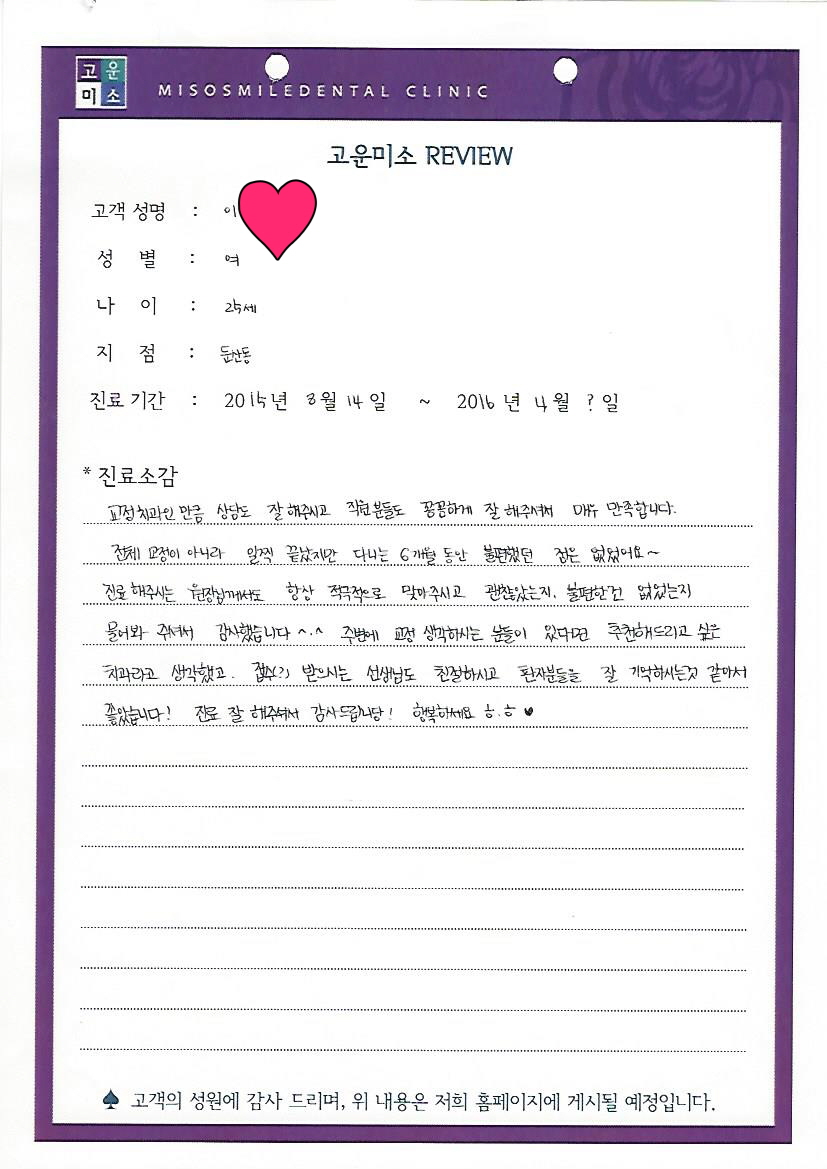 고운
미소
MISOSMILEDENTAL CLINIC
고운미소 REVIEW
고객 성명 : 이
성 별 : 여
나 이 : 25세
지 점 : 둔산동
진료 기간 : 2015년 8월 14일 ~ 2016년 4월 ?일
* 진료소감
교정치과인 만큼 상담도 잘 해주시고 직원분들도 꼼꼼하게 잘 해주셔서 매우 만족합니다.
전체 교정이 아니라 일찍 끝났지만 다니는 6개월 동안 불편했던 점은 없었어요~
진료 해주시는 원장님께서도 항상 적극적으로 맞아주시고 괜찮았는지, 불편한건 없었는지
물어봐 주셔서 감사했습니다 ^.^ 주변에 교정 생각하시는 분들이 있다면 추천해드리고 싶은
치과라고 생각했고. 접수(?) 받으시는 선생님도 친절하시고 환자분들을 잘 기억하시는것 같아서
좋았습니다! 진료 잘 해주셔서 감사드립니당! 행복하세요 ㅎ.ㅎ ♥
♠ 고객의 성원에 감사 드리며, 위 내용은 저희 홈페이지에 게시될 예정입니다.